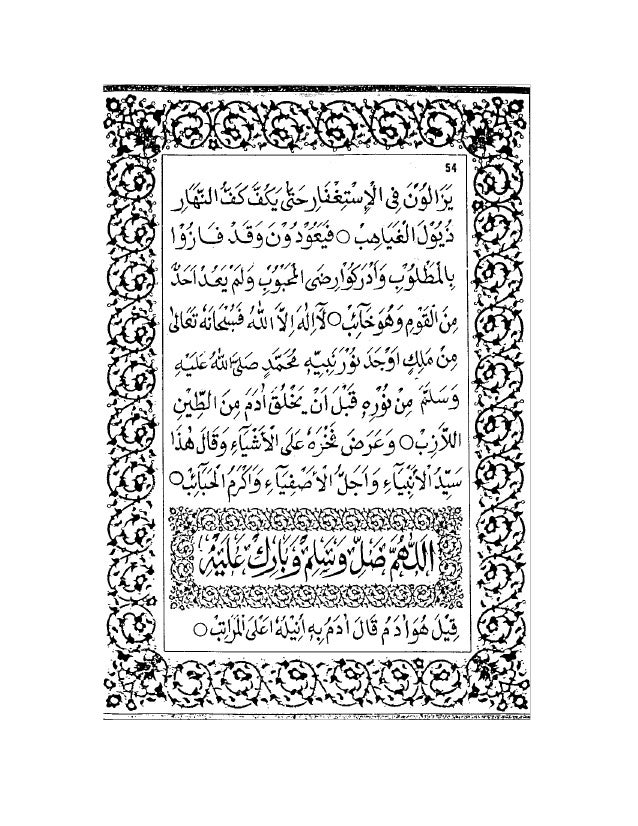 54
يَزَالُوْنَ فِي الْاِسْتِغْفَارِ حَتّٰى يَكُفَّ كَفُّ النَّهَارِ
ذُيُوْلَ الْغَيَاهِبْ ○ فَيَعُوْدُوْنَ وَقَدْ فَازُوْا
بِالْمَطْلُوْبِ وَاَدْرَكُوْا رِضَى الْمَحْبُوْبِ وَلَمْ يَعُدْ اَحَدٌ
مِنَ الْقَوْمِ وَهُوَ خَآئِبْ ○ لَآ اِلٰهَ اِلَّا اللّٰهُ فَسُبْحَانَهٗ تَعَالٰى
مِنْ مَلِكٍ اَوْجَدَ نُوْرَ نَبِيِّهٖ مُحَمَّدٍ صَلَّى اللّٰهُ عَلَيْهِ
وَسَلَّمَ مِنْ نُوْرِهٖ قَبْلَ اَنْ يَخْلُقَ اٰدَمَ مِنَ الطِّيْنِ
اللَّازِبْ ○ وَعَرَضَ فَخْرَهٗ عَلَى الْاَشْيَآءِ وَقَالَ هٰذَا
سَيِّدُ الْاَنْبِيَآءِ وَاَجَلُّ الْاَصْفِيَآءِ وَاَكْرَمُ الْحَبَآئِبْ ○
اَللّٰهُمَّ صَلِّ وَسَلِّمْ وَبَارِكْ عَلَيْهِ
قِيْلَ هُوَ اٰدَمُ قَالَ اٰدَمُ بِهٖ اُنِيْلُهٗ اَعْلَى الْمَرَاتِبْ ○